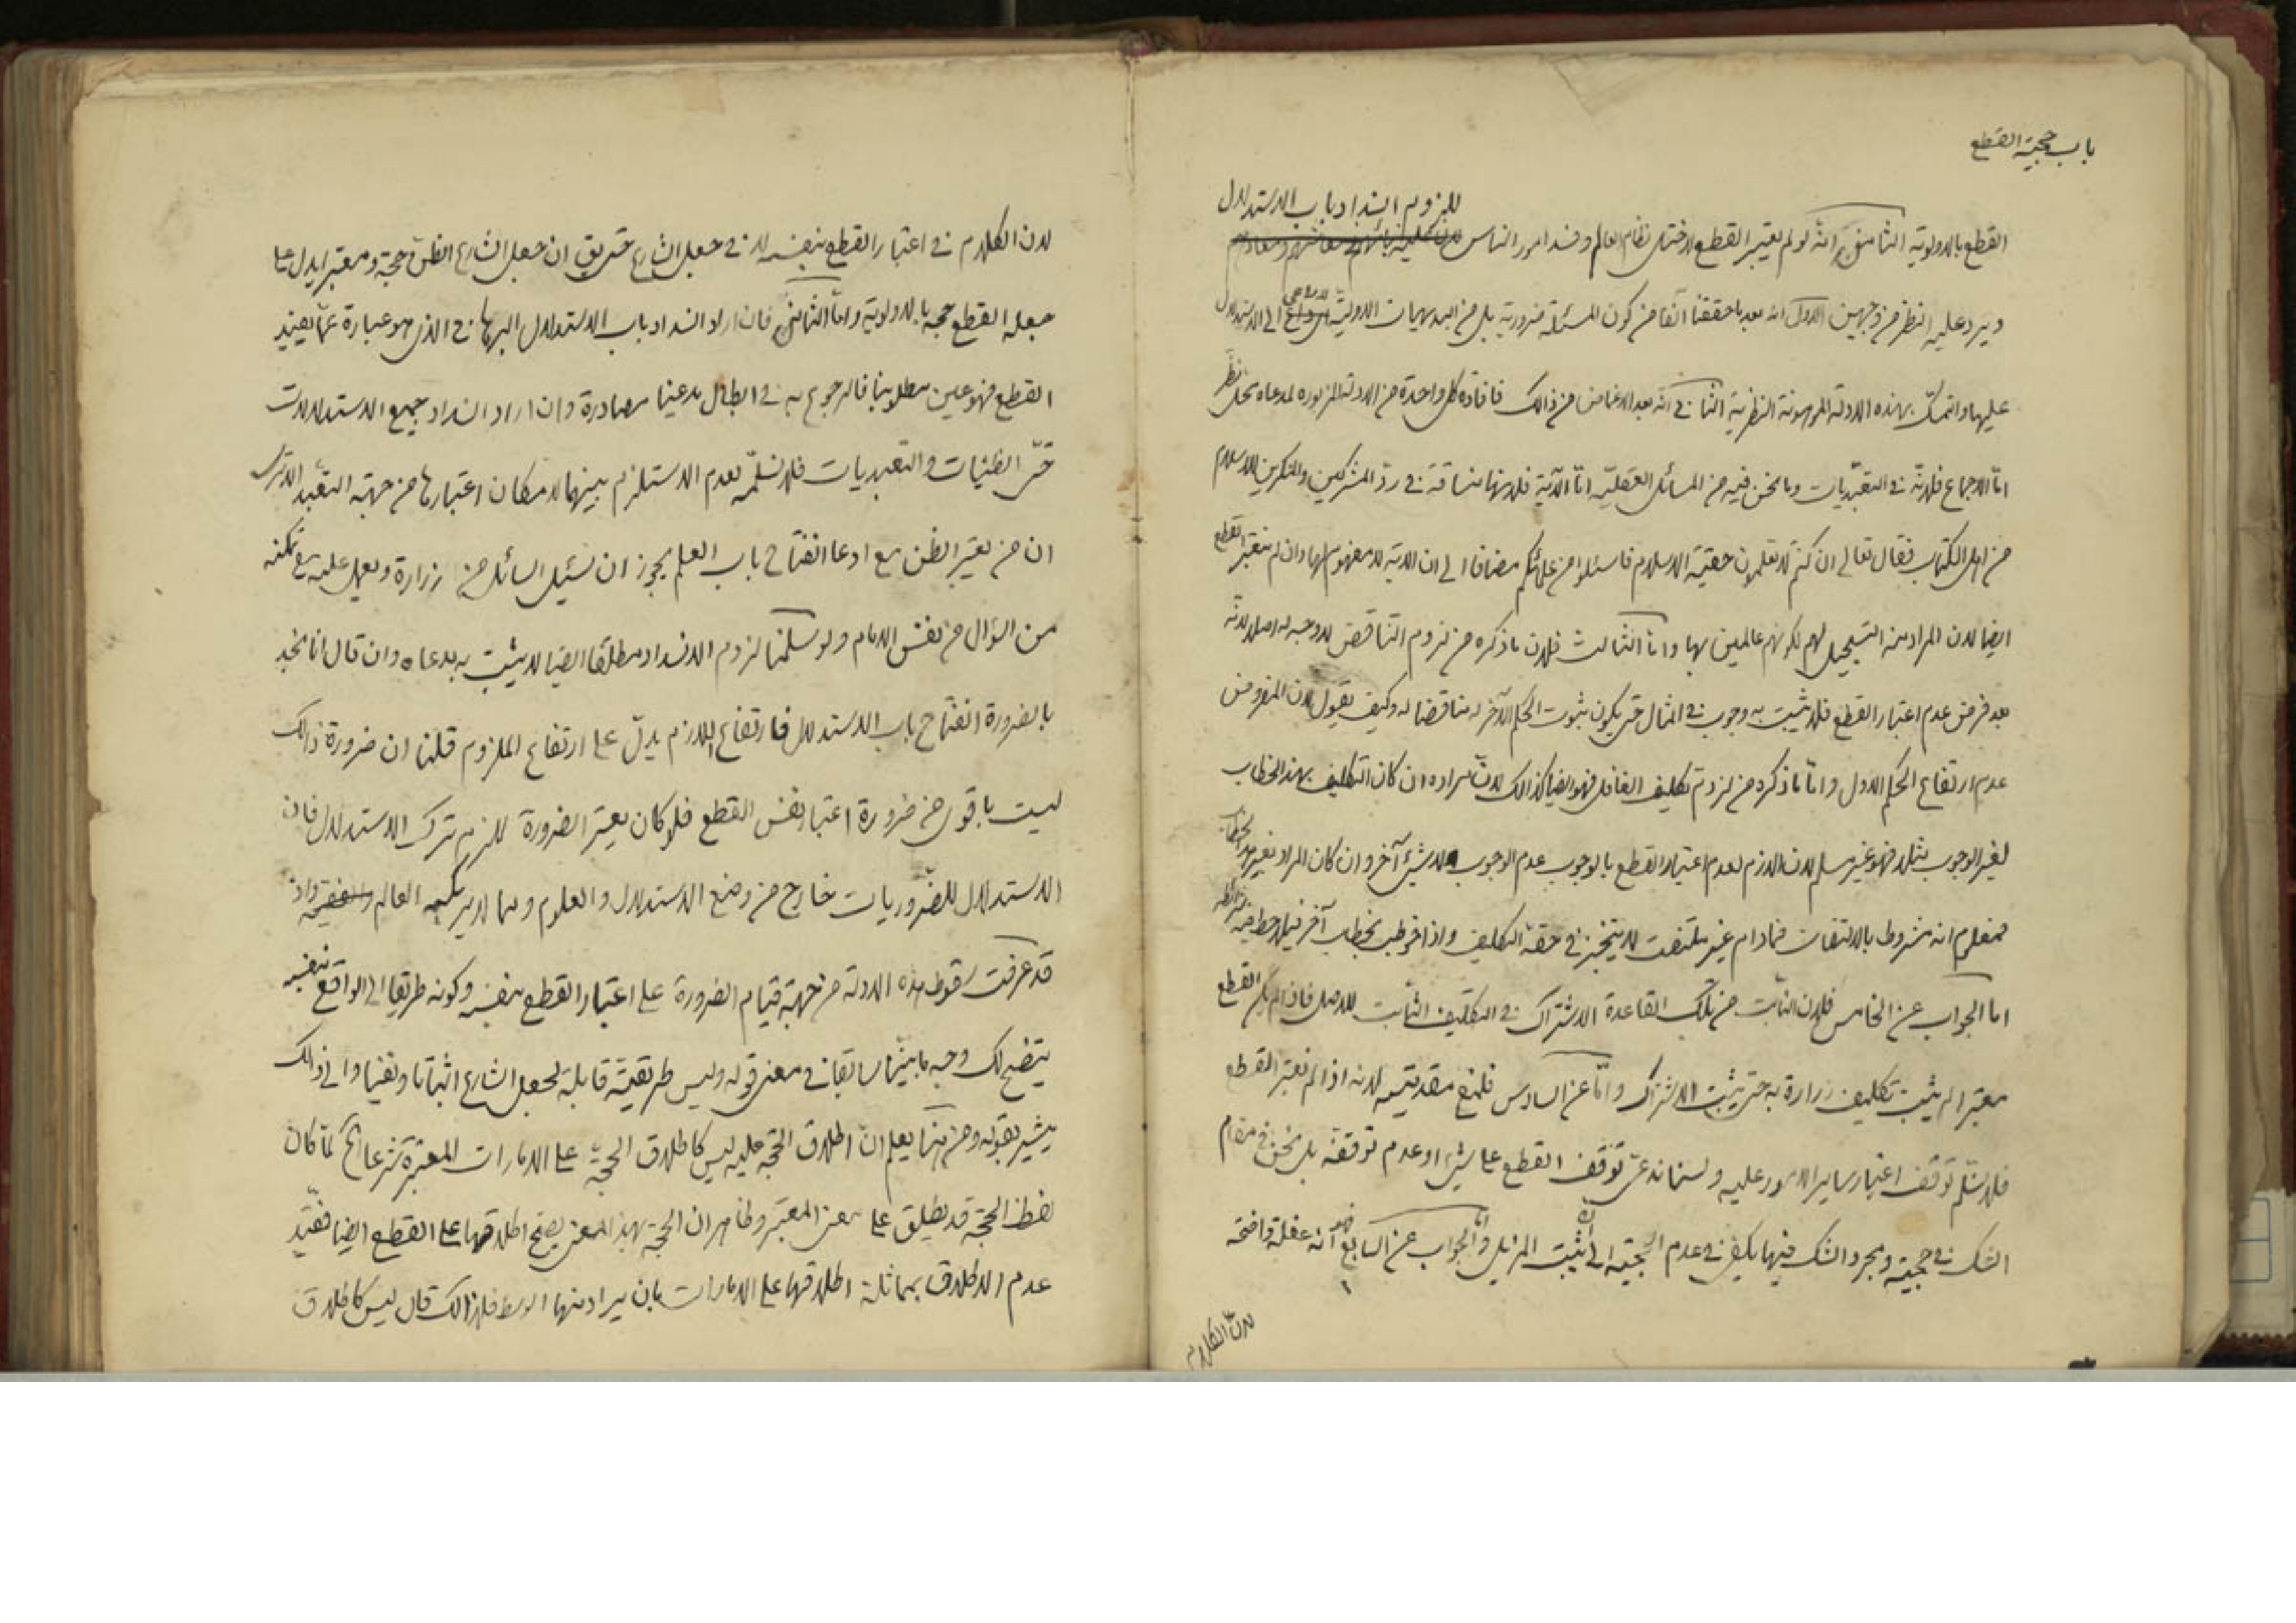 باب حجية القطع
للزوم انسداد باب الاستدلال
القطع بالاولوية الثامن انه لو لم يعتبر القطع لاختل نظام العالم وفسد امور الناس
ويرد عليه النظر من وجهين الاول انه بعد ما حققنا آنفا من كون المسئلة ضرورية بل من البديهيات الاولية لا داعى الى الاستدلال
عليها والتمسك بهذه الادلة الموهونة النظرية الثانى انه بعد الاغماض من ذالك فافادة كل واحدة من الادلة المزبورة لمدعاه محل نظر
امّا الاجماع فلانّه فى التعبّديات وما نحن فيه من المسائل العقليّة امّا الآية فلانها مساقة فى ردّ المشركين والمنكرين للاسلام
من اهل الكتاب فقال تعالى ان كنتم لا تعلمون حقية الاسلام فاسئلوا من علمائكم مضافا الى ان الاية لا مفهوم لها وان لم يعتبر القطع
ايضا لان المراد منه التسجيل لهم لكونهم عالمين بها وامّا الثالث فلان ما ذكره من لزوم التناقض لا وجه له اصلا لانّه
بعد فرض عدم اعتبار القطع فلا يثبت به وجوب فى المثال حتى يكون ثبوت الحكم الآخر له مناقضا له وكيف يقول لان المفروض
عدم ارتفاع الحكم الاول وامّا ما ذكره من لزوم تكليف الغافل فهو ايضا كذالك لانّ مراده ان كان التكليف بهذا الخطاب
لغير الوجوب مثلا فهو غير مسلم لان اللازم لعدم اعتبار القطع بالوجوب عدم الوجوب لا شئ آخر وان كان المراد بغير هذا الخطاب
فمعلوم انه مشروط بالالتفات فمادام غير ملتفت لا يتنجز فى حقه التكليف واذا خوطب بخطاب آخر فيلاحظ فيه شرائطه
امّا الجواب عن الخامس فلان الثابت من تلك القاعدة الاشتراك فى التكليف الثابت للاصل فاذا لم يكن القطع
معتبرا لم يثبت تكليف زرارة به حتى يثبت الاشتراك وامّا عن السادس فلمنع مقدمتيه لانه اذا لم يعتبر القطع
فلا نسلّم توقف اعتبار ساير الامور عليه ولسنا ندعى توقف القطع على شئ او عدم توقفه بل نحن فى مقام
الشك فى حجيته ومجرد الشك فيها يكفى فى عدم الحجية الى ان يثبت المزيل وامّا الجواب عن السابع فهو انه غفلة واضحة
لانّ الكلام
لان الكلام فى اعتبار القطع بنفسه لا فى جعل الشارع حتى يق ان جعل الشارع الظن حجة ومعتبرا يدل على
جعله القطع حجة بالاولوية وامّا الثامن فان اراد انسداد باب الاستدلال البرهانى الذى هو عبارة عمّا يفيد
القطع فهو عين مطلوبنا فالرجوع به فى ابطال مدعينا مصادرة وان اراد انسداد جميع الاستدلالات
حتّى الظنيات والتعبديات فلا نسلّمه لعدم الاستلزام بينهما لامكان اعتبارها من جهة التعبد الا ترى
ان من يعتبر الظن مع ادعا انفتاح باب العلم يجوز ان يسئل السائل من زرارة ويعول عليه مع تمكنه
من السؤال من نفس الامام ولو سلمنا لزوم الانسداد مطلقا ايضا لا يثبت به مدعاه وان قال انا نجد
بالضرورة انفتاح باب الاستدلال فارتفاع اللازم يدلّ على ارتفاع الملزوم قلنا ان ضرورة ذالك
ليست باقوى من ضرورة اعتبار نفس القطع فلو كان يعتبر الضرورة للزم ترك الاستدلال فان
الاستدلال للضّروريات خارج من وضع الاستدلال والعلوم ومما لا يرتكبه العالم واذ
قد عرفت سقوط هذه الادلة من جهة قيام الضرورة على اعتبار القطع بنفسه وكونه طريقا الى الواقع بنفسه
يتضح لك وجه ما بينّا سابقا فى معنى قوله وليس طريقيته قابلة لجعل الشارع اثباتا ونفيا والى ذالك
يشير بقوله ومن هنا يعلم انّ اطلاق الحجّة عليه ليس كاطلاق الحجّة على الامارات المعتبرة شرعا الخ لما كان
لفظ الحجّة قد يطلق على معنى المعتبر وظاهر ان الحجّة بهذا المعنى يصح اطلاقها على القطع ايضا فقيّد
عدم الاطلاق بمماثلة اطلاقها على الامارات بان يراد منها الوسط فلذالك قال ليس كاطلاق